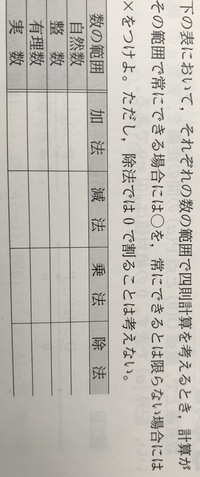 下の表において，それぞれの数の範囲で四則計算を考えるとき，計算が
その範囲で常にできる場合には○を，常にできるとは限らない場合には
×をつけよ。ただし，除法では0で割ることは考えない。
数の範囲 加法 減法 乗法 除法
自然数
整数
有理数
実数